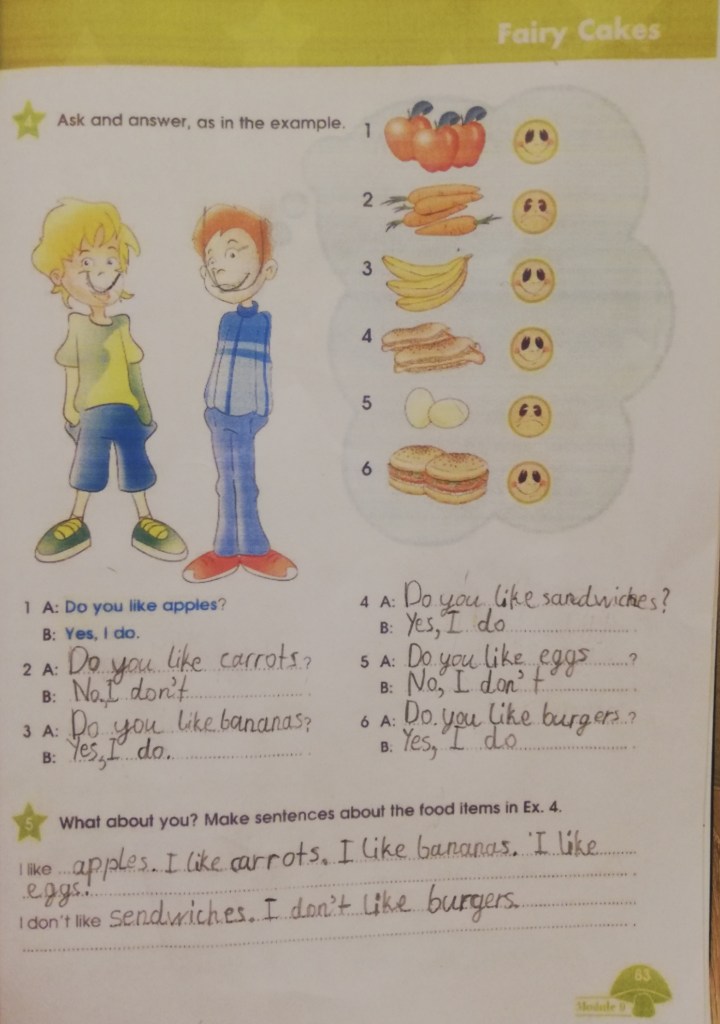 Fairy Cakes
4 Ask and answer, as in the example.
1
2
3
4
5
6
1 A: Do you like apples?
B: Yes, I do.
2 A: Do you like carrots?
B: No, I don't
3 A: Do you like bananas?
B: Yes, I do.
4 A: Do you like sandwiches?
B: Yes, I do
5 A: Do you like eggs ?
B: No, I don't
6 A: Do you like burgers?
B: Yes, I do
5 What about you? Make sentences about the food items in Ex. 4.
I like apples. I like carrots. I like bananas. I like
eggs.
I don't like sendwiches. I don't like burgers.
83
Module 9